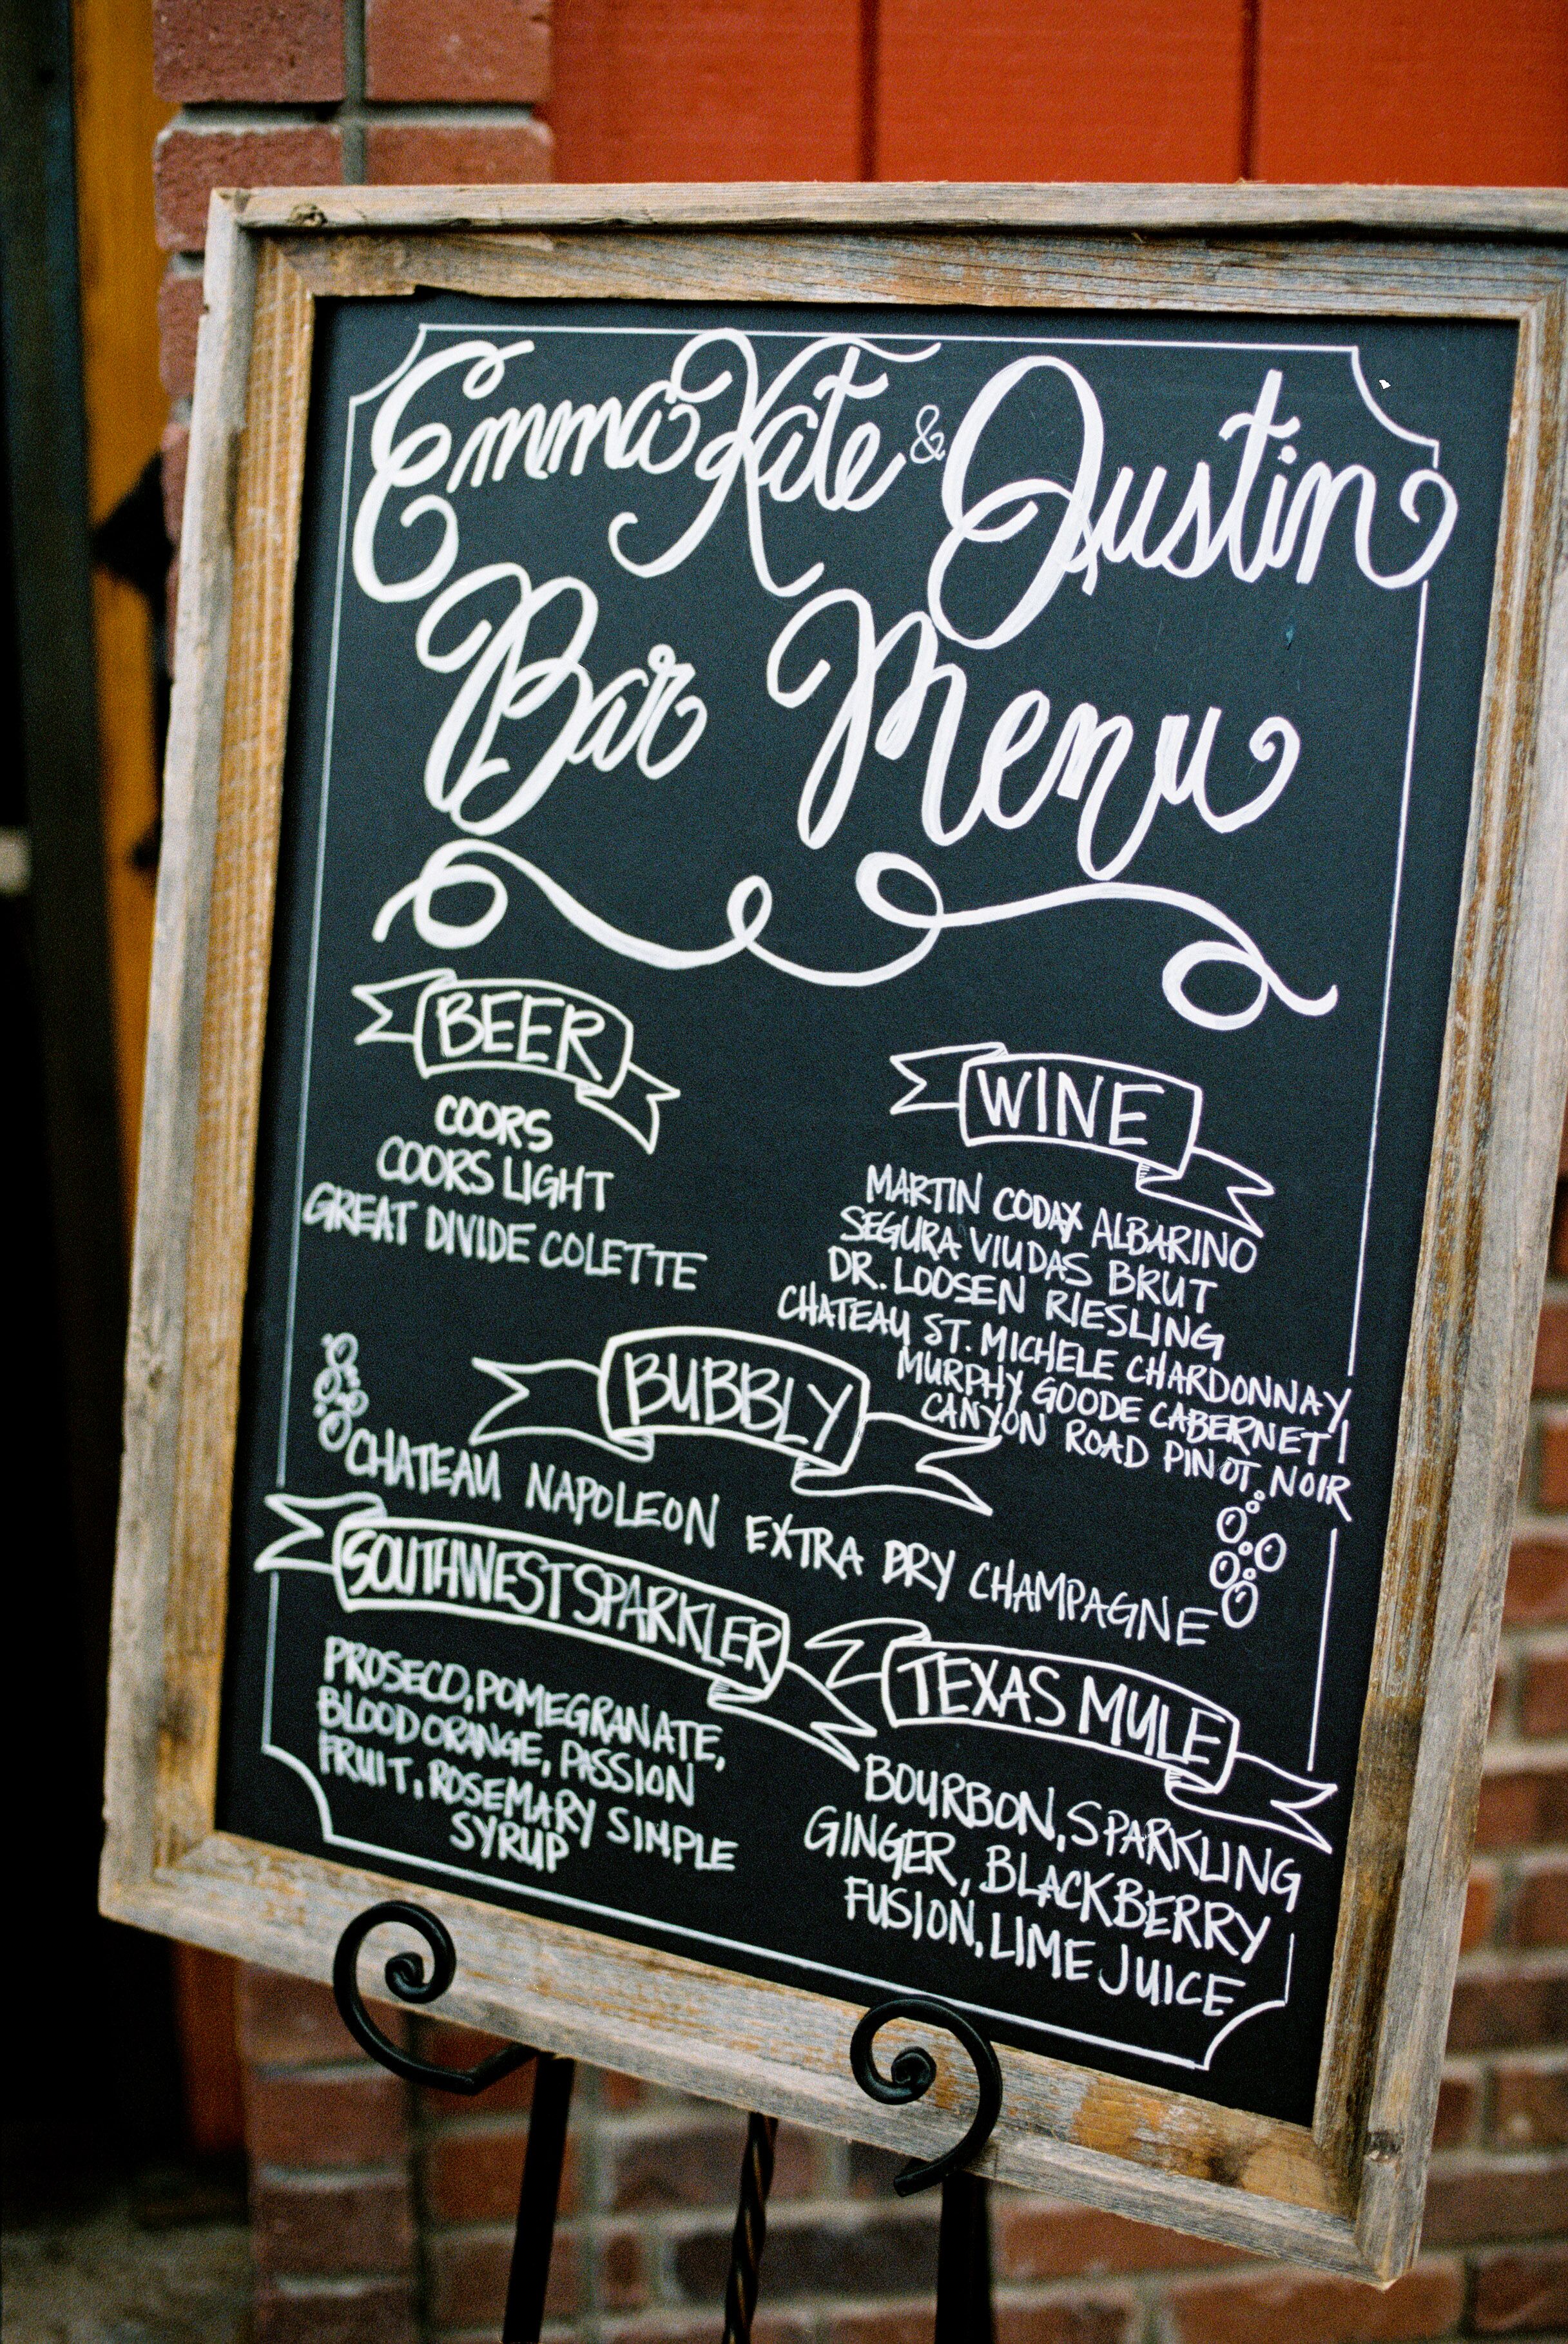 Emma Kate & Justin
Bar Menu
BEER
COORS
COORS LIGHT
GREAT DIVIDE COLETTE
WINE
MARTIN CODAX ALBARINO
SEGURA VIUDAS BRUT
DR. LOOSEN RIESLING
CHATEAU ST. MICHELE CHARDONNAY
MURPHY GOODE CABERNET
CANYON ROAD PINOT NOIR
BUBBLY
CHATEAU NAPOLEON EXTRA DRY CHAMPAGNE
SOUTHWEST SPARKLER
PROSECO, POMEGRANATE,
BLOOD ORANGE, PASSION
FRUIT, ROSEMARY SIMPLE
SYRUP
TEXAS MULE
BOURBON, SPARKLING
GINGER, BLACKBERRY
FUSION, LIME JUICE